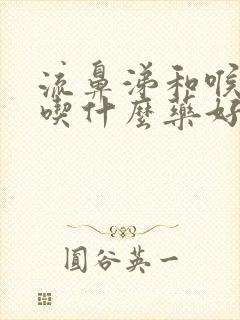 流鼻涕和喉
喫什麼藥好
圓谷英一